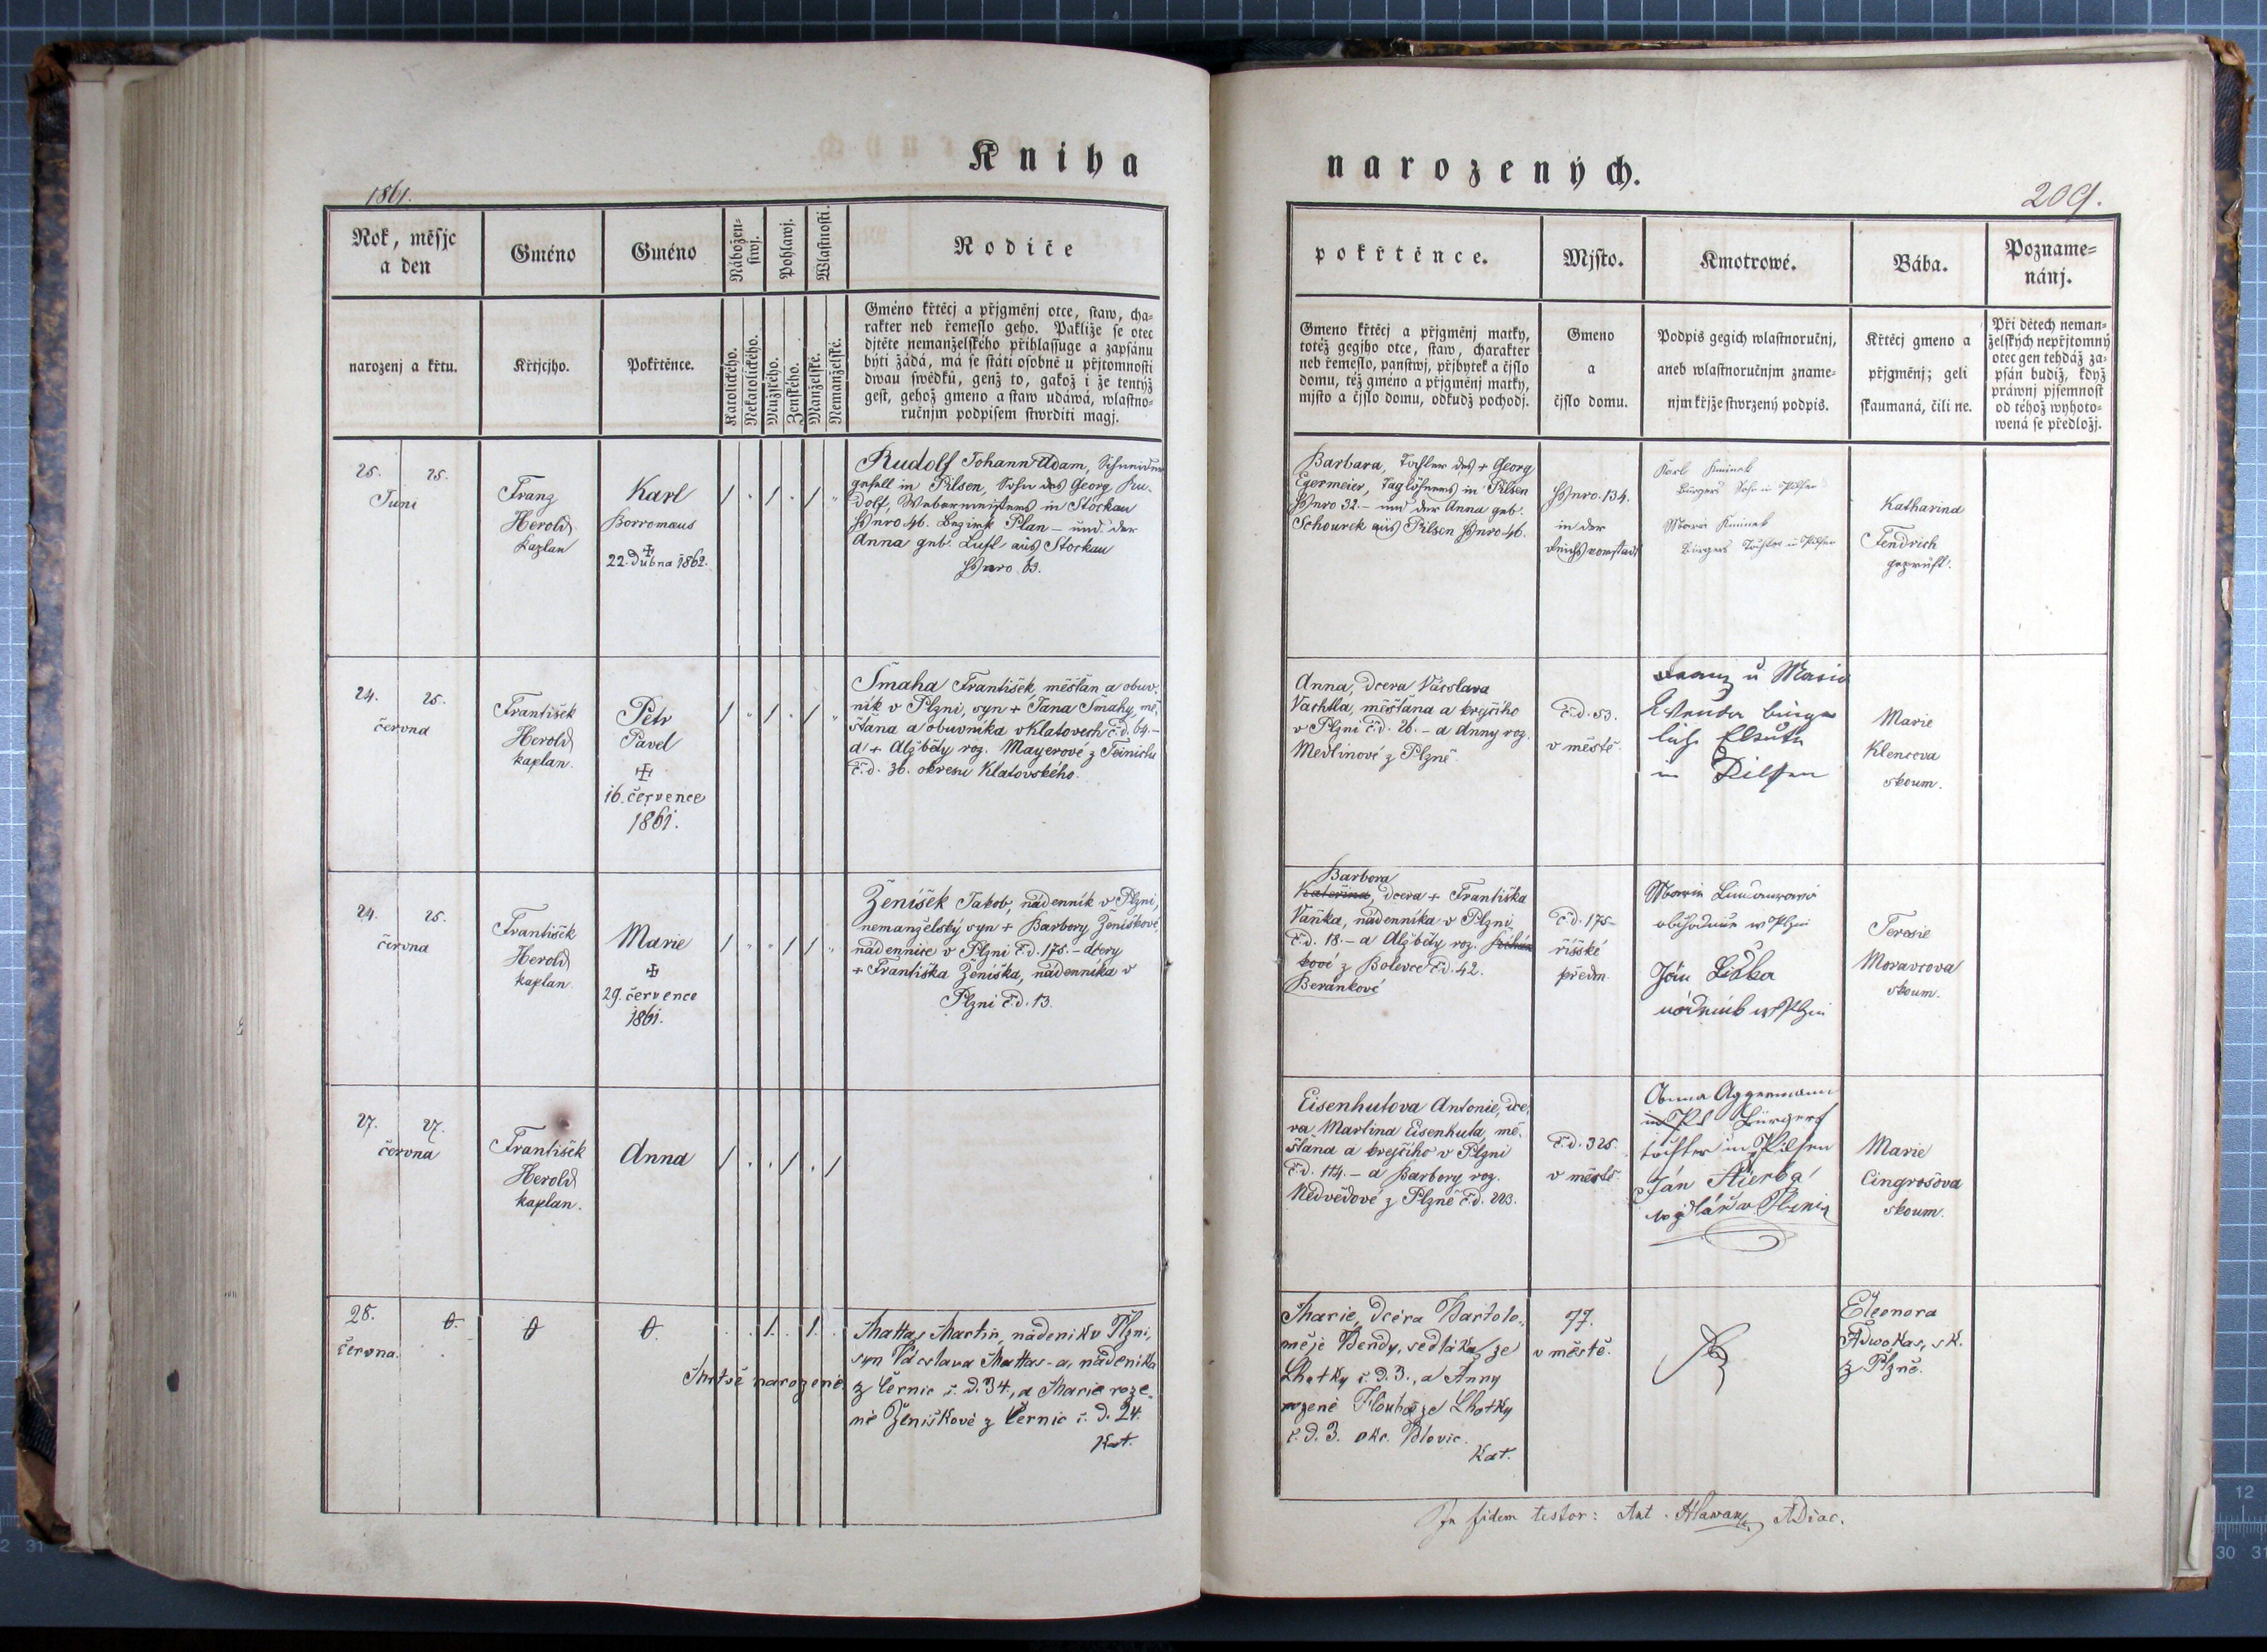 Kniha
narozených.
1861.
209.
Rok, měsjc
a den
Gméno
Gméno
Nábožen-
stwj.
Pohlawj.
Wlastnosti.
Rodiče
narozenj a křtu.
Křtjcjho.
Pokřtěnce.
Katolického.
Nekatolického.
Mužského.
Ženského.
Manželské.
Nemanželské.
Gméno křtěcj a přjgměnj otce, staw, cha-
rakter neb řemeslo geho. Pakliže se otec
djtěte nemanželského přihlassuge a zapsánu
býti žádá, má se státi osobně u přjtomnosti
dwau swědků, genž to, gakož i že tentýž
gest, gehož gmeno a staw udáwá, wlastno-
ručnjm podpisem stwrditi magj.
pokřtěnce.
Mjsto.
Kmotrowé.
Bába.
Pozname-
nánj.
Gmeno křtěcj a přjgměnj matky,
totéž gegjho otce, staw, charakter
neb řemeslo, panstwj, přjbytek a čjslo
domu, též gméno a přjgměnj matky,
mjsto a čjslo domu, odkudž pochodj.
Gmeno
a
čjslo domu.
Podpis gegich wlastnoručnj,
aneb wlastnoručnjm zname-
njm křjže stwrzený podpis.
Křtěcj gmeno a
přjgměnj; geli
skaumaná, čili ne.
Při dětech neman-
želských nepřjtomný
otec gen tehdáž za-
psán budiž, když
práwnj pjsemnost
od téhož wyhoto-
wená se předložj.
25. 25.
Juni
Franz
Herold
Kaplan
Karl
Borromäus
✠
22. dubna 1862.
Rudolf Johann Adam, Schneider
gesell in Pilsen, Sohn des Georg Ru-
dolf, Webermeisters in Stockau
HNro 46. Bezirk Plan - und der
Anna geb. Lufl aus Stockau
HNro 63.
Barbara, Tochter des + Georg
Egermeier, Taglöhners in Pilsen
HNro 32. - und der Anna geb.
Schourek aus Pilsen HNro 46.
HNro. 134.
in der
Reichsvorstadt
Karl
Bürgers Sohn in Pilsen
Bürgers Tochter in Pilsen
Katharina
Fendrich
geprüft.
24. 25.
června
František
Herold
kaplan.
Petr
Pavel
✠
16. července
1861.
Šmaha František, měšťan a obuv-
ník v Plzni, syn + Jana Šmahy, mě-
šťana a obuvníka v Klatovech č.d. 64. -
a + Alžběty roz. Mayerové z Teinichu
č.d. 36. okresu Klatovského.
Anna, dcera Vácslava
Vachtla, měšťana a krejčího
v Plzni č.d. 26. - a Anny roz.
Medlinové z Plzně.
č.d. 53.
v městě.
Franz u Maria
in Pilsen
Marie
Klencova
skoum.
24. 25.
června
František
Herold
kaplan.
Marie
✠
29. července
1861.
Ženíšek Jakob, nádenník v Plzni,
nemanželský syn + Barbory Ženíškové,
nádennice v Plzni č.d. 175. - dcery
+ Františka Ženíška, nádenníka v
Plzni č.d. 13.
Barbora
Kateřina, dcera + Františka
Vaňka, nádenníka v Plzni
č.d. 18. - a Alžběty roz.
kové z Bolevce č.d. 42.
Beránkové
č.d. 175-
říšské
předm.
Jan Liška
Teresie
Moravcova
skoum.
27. 27.
června
František
Herold
kaplan.
Anna
Eisenhutova Antonie, dce-
ra Martina Eisenhuta, mě-
šťana a krejčího v Plzni
č.d. 114. - a Barbory roz.
Nedvědové z Plzně č.d. 223.
č.d. 325.
v městě.
Anna Aggermann
in Pil Bürgers
tochter in Pilsen
Marie
Cingrošova
skoum.
28.
června.
0. 0 0.
Mrtvě narozené.
Mattas Martin, nádeník v Plzni,
syn Václava Mattas-a, nádeníka
z Černic č. d. 34, a Marie roze-
né Ženíškové z Černic č. d. 24.
Kat.
Marie, dcéra Bartolo-
měje Bendy, sedláka ze
Lhotky č. d. 3., a Anny
rozené Hlouhá ze Lhotky
č. d. 3. okr. Blovic.
Kat.
77.
v městě.
Eleonora
Adwokas, sk.
z Plzně.
In fidem testor: Ant. ADiac.